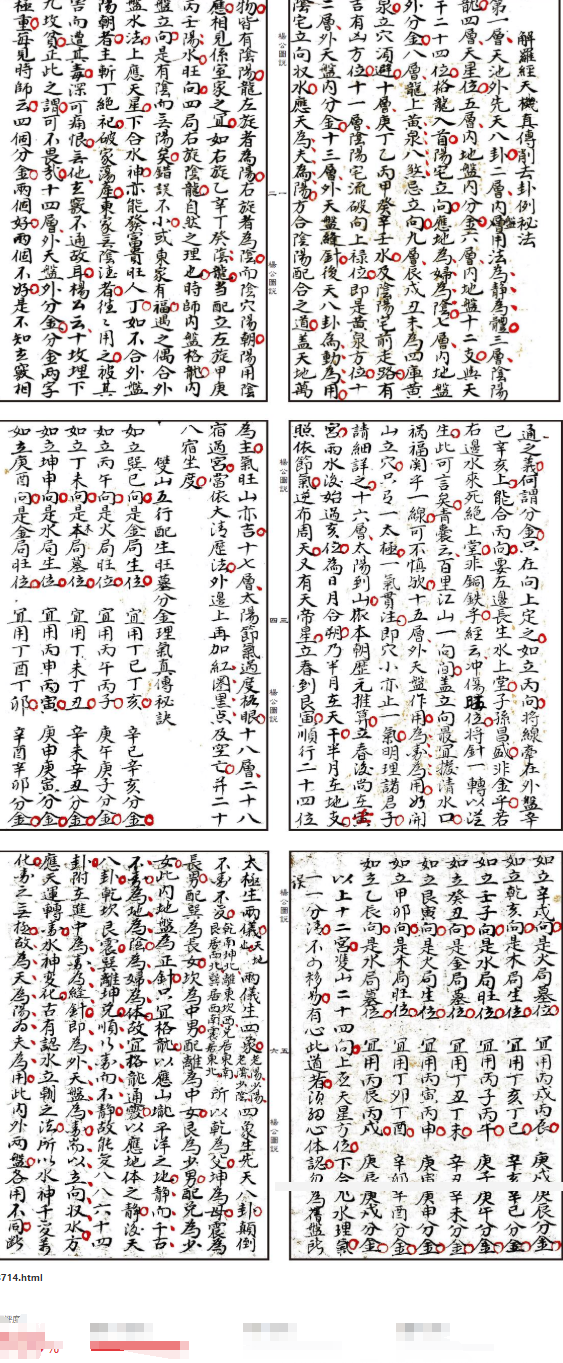 解羅經天機真傳削去卦例秘法
第一層天池外先天八卦二層內盤用法為靜為體三層陰陽
龍四層天星位五層內地盤內分金六層內地盤十二支與天
干二十四位格龍入首陽宅立向應地為婦為陰七層內地盤
外分金八層龍上黃泉八煞忌立向九層辰戌丑未為四庫黃
泉立穴須避十層庚丁乙丙甲癸辛壬水及陰陽宅前走路有
吉有凶方位十一層陰陽宅流破向上祿位即是黃泉方位十
二層外天盤內分金十三層外天盤縫針後天八卦為動為用
陰宅立向收水應天為夫為陽方合陰陽配合之道蓋天地萬
楊公圖說
一
二
楊公圖說
物皆有陰陽龍左旋者為陽右旋者為陰而陰穴陽朝陽用陰
應相見係室家之宜如右旋乙辛丁癸陰龍當配立左旋甲庚
丙壬陽水旺向四局右旋陰龍自然之理也時師內盤格龍內
盤立向是有陰而無陽矣錯誤不小或東家有福遇之偶合外
盤水法上應天星下合水神亦能發富貴旺人丁如不合外盤
陽朝者主斬丁絕祀破家蕩產東家無陰隲者往々用之被其
害而遭其毒深可痛恨無他玄竅不通故耳楊公云十坟埋下
九坟貧正此之謂可不畏哉十四層外天盤外分金分金兩字
極重每見時師云四個分金兩個好兩個不好是不知玄竅相
通之義何謂分金只在向上定之如立丙向將線牽在外盤辛
巳辛亥上能合丙向要左邊長生水上堂子孫昌盛非金乎若
右邊水來死絕上堂非銅鉄乎經云沖傷旺位將針一轉以從
生此可言矣青囊云百里江山一向間蓋立向最宜撥清水口
禍福関乎一線可不慎歟十五層外天盤作用為為用
山立穴只一太極一氣貫注即穴小亦止一氣明理諸君子
請細詳之十六層太陽到山依本朝歷元推算立春後尚在
宮雨水後始過亥位為日月合朔乃半月在天干半月在地支
照依節氣逆布周天又有天帝星立春到艮寅順行二十四位
楊公圖說
三
四
楊公圖說
為主氣旺山亦吉十七層太陽節氣過度格眼十八層二十八
宿過宮當依大清歷法外邊上再加紅圈黑点及空亡并二十
八宿坐度
雙山五行配生旺墓分金理氣真傳秘訣
如立巽巳向是金局生位 宜用丁巳丁亥 辛巳辛亥分金
如立丙午向是火局旺位 宜用丙午丙子 庚午庚子分金
如立丁未向是木局墓位 宜用丁未丁丑 辛未辛丑分金
如立坤申向是水局生位 宜用丙申丙寅 庚申庚寅分金
如立庚酉向是金局旺位 宜用丁酉丁卯 辛酉辛卯分金
如立辛戌向是火局墓位 宜用丙戌丙辰 庚戌庚辰分金
如立乾亥向是木局生位 宜用丁亥丁巳 辛亥辛巳分金
如立壬子向是水局旺位 宜用丙子丙午 庚子庚午分金
如立癸丑向是金局墓位 宜用丁丑丁未 辛丑辛未分金
如立艮寅向是火局生位 宜用丙寅丙申 庚寅庚申分金
如立甲卯向是木局旺位 宜用丁卯丁酉 辛卯辛酉分金
如立乙辰向是水局墓位 宜用丙辰丙戌 庚辰庚戌分金
以上十二宮雙山二十四向上應天星方位下合地水理氣
一一分清不可移易有心此道者須細心体認勿為舊盤所
誤
楊公圖說
五
六
楊公圖說
太極生兩儀天地兩儀生四象老陽少陽老陰少陰四象生先天八卦顛倒
不易不交乾南坤北離東坎西兌居東南艮居西北巽居西南震居東北所以乾為父坤為母震為
長男配巽為長女坎為中男配離為中女艮為少男配兌為少
女此內地盤為正針只宜格龍以應山巃平洋之地靜而千古
不易為地為陰為婦為体故宜格龍通竅以應地体之靜後天
八卦乾坎艮震巽離坤兌順以易而不靜故能變八八六十四
卦附在進中為易為縫針即為外天盤為易尚以立向收水方
應天運轉易水神變化古有認水立朝之法所以水神千變萬
化易之無極故為天為陽為夫為用此內外兩盤各用不同此
714.html